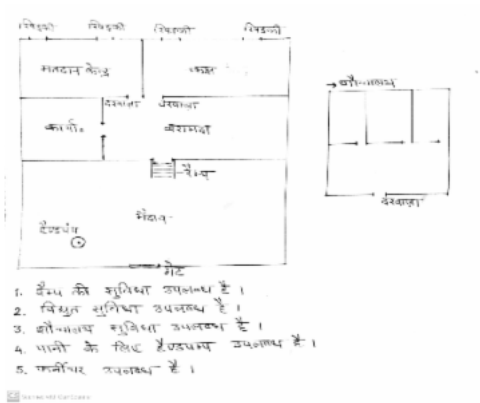 खिड़की खिड़की खिड़की खिड़की
मतदान केन्द्र कक्ष
→ शौचालय
दरवाजा दरवाजा
कार्या० बरामदा
रैम्प
दरवाजा
मैदान
हैण्डपंप
गेट
1. रैम्प की सुविधा उपलब्ध है ।
2. विद्युत सुविधा उपलब्ध है ।
3. शौचालय सुविधा उपलब्ध है ।
4. पानी के लिए हैण्डपम्प उपलब्ध है ।
5. फर्नीचर उपलब्ध है ।
CS Scanned with CamScanner